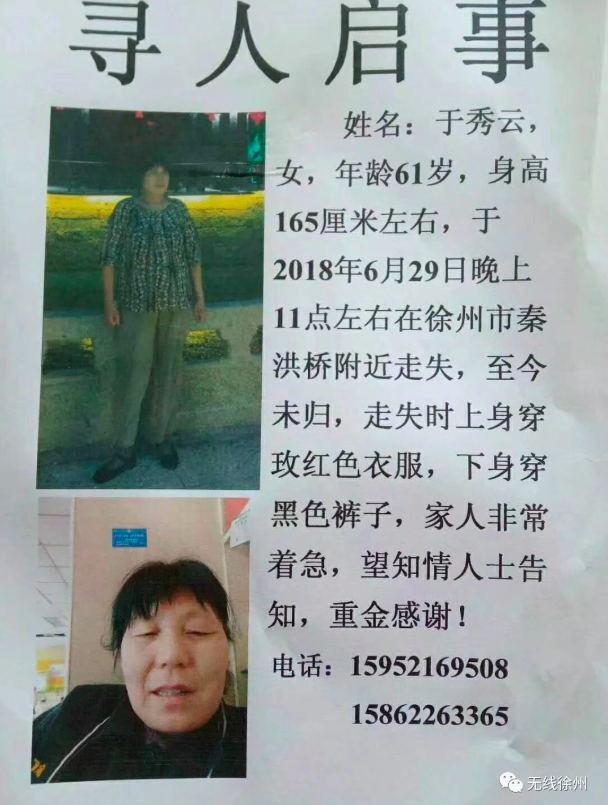 寻人启事
姓名：于秀云，
女，年龄61岁，身高
165厘米左右，于
2018年6月29日晚上
11点左右在徐州市秦
洪桥附近走失，至今
未归，走失时上身穿
玫红色衣服，下身穿
黑色裤子，家人非常
着急，望知情人士告
知，重金感谢！
电话：15952169508
15862263365
无线徐州